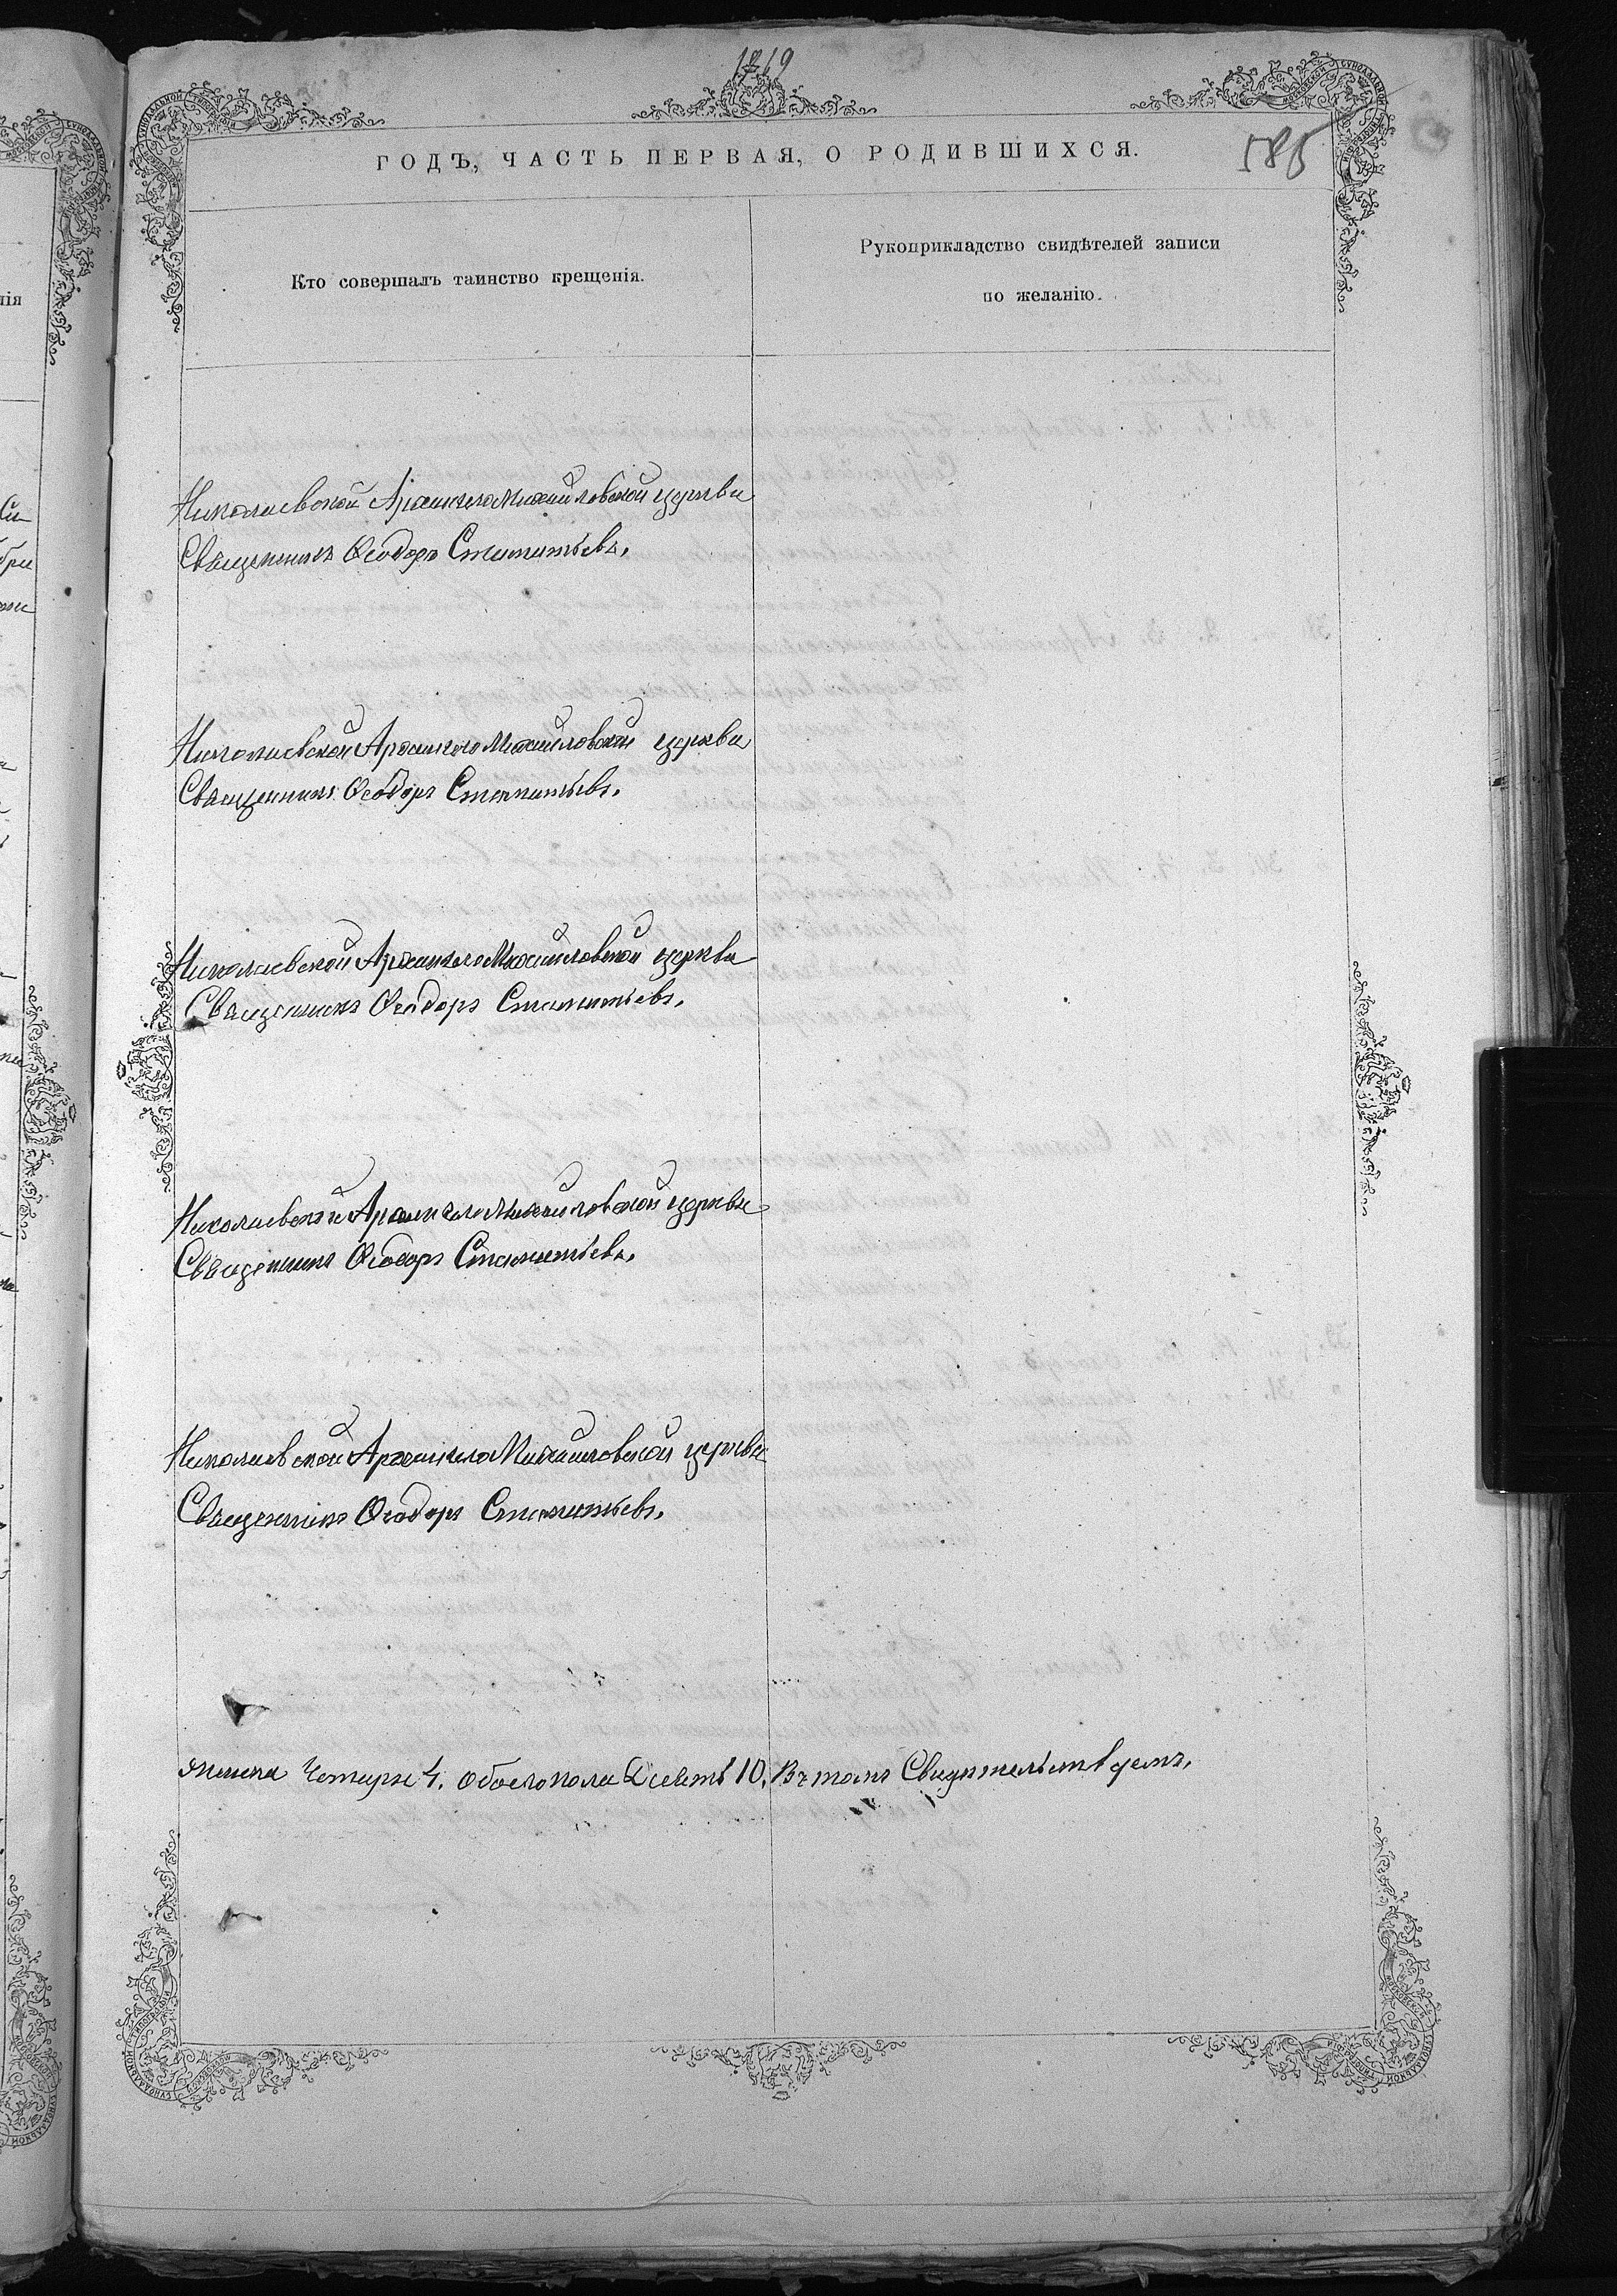 1869
ГОДЪ, ЧАСТЬ ПЕРВАЯ, О РОДИВШИХСЯ.
585
Кто совершалъ таинство крещенія.
Рукоприкладство свидѣтелей записи
по желанію.
Николаевской Архангело Михайловской церкви
Священникъ Ѳеодоръ Стаматьевъ.
Николаевской Архангело Михайловской церкви
Священникъ Ѳеодоръ Стаматьевъ.
Николаевской Архангело Михайловской церкви
Священникъ Ѳеодоръ Стаматьевъ.
Николаевской Архангело Михайловской церкви
Священникъ Ѳеодоръ Стаматьевъ.
Николаевской Архангело Михайловской церкви
Священникъ Ѳеодоръ Стаматьевъ.
женска Четыре 4. обоего пола Десять 10. Въ томъ Свидѣтельствуемъ.